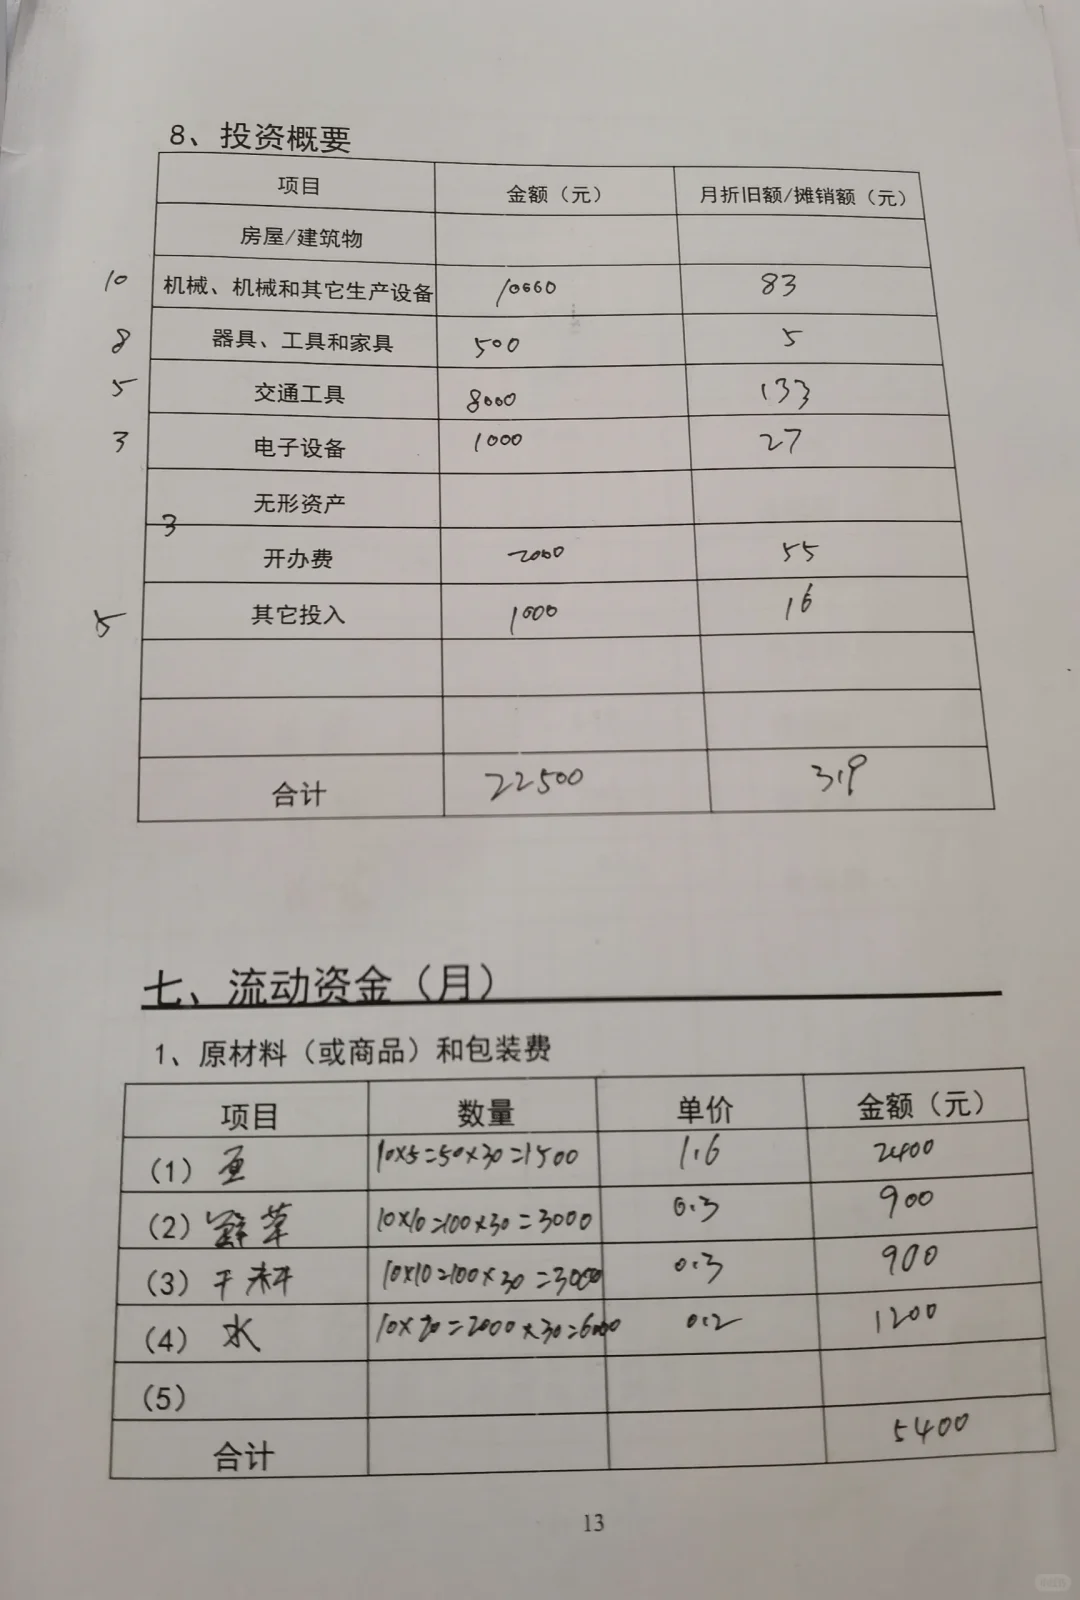 8、投资概要
项目 金额（元） 月折旧额/摊销额（元）
房屋/建筑物
10 机械、机械和其它生产设备 10000 83
8 器具、工具和家具 500 5
5 交通工具 8000 133
3 电子设备 1000 27
无形资产
3
开办费 2000 55
5 其它投入 1000 16
合计 22500 319
七、流动资金（月）
1、原材料（或商品）和包装费
项目 数量 单价 金额（元）
（1） 10×5=50×30=1500 1.6 2400
（2）鲜草 10×10=100×30=3000 0.3 900
（3）干料 10×10=100×30=3000 0.3 900
（4）水 10×20=2000×30=6000 0.2 1200
（5）
合计 5400
13